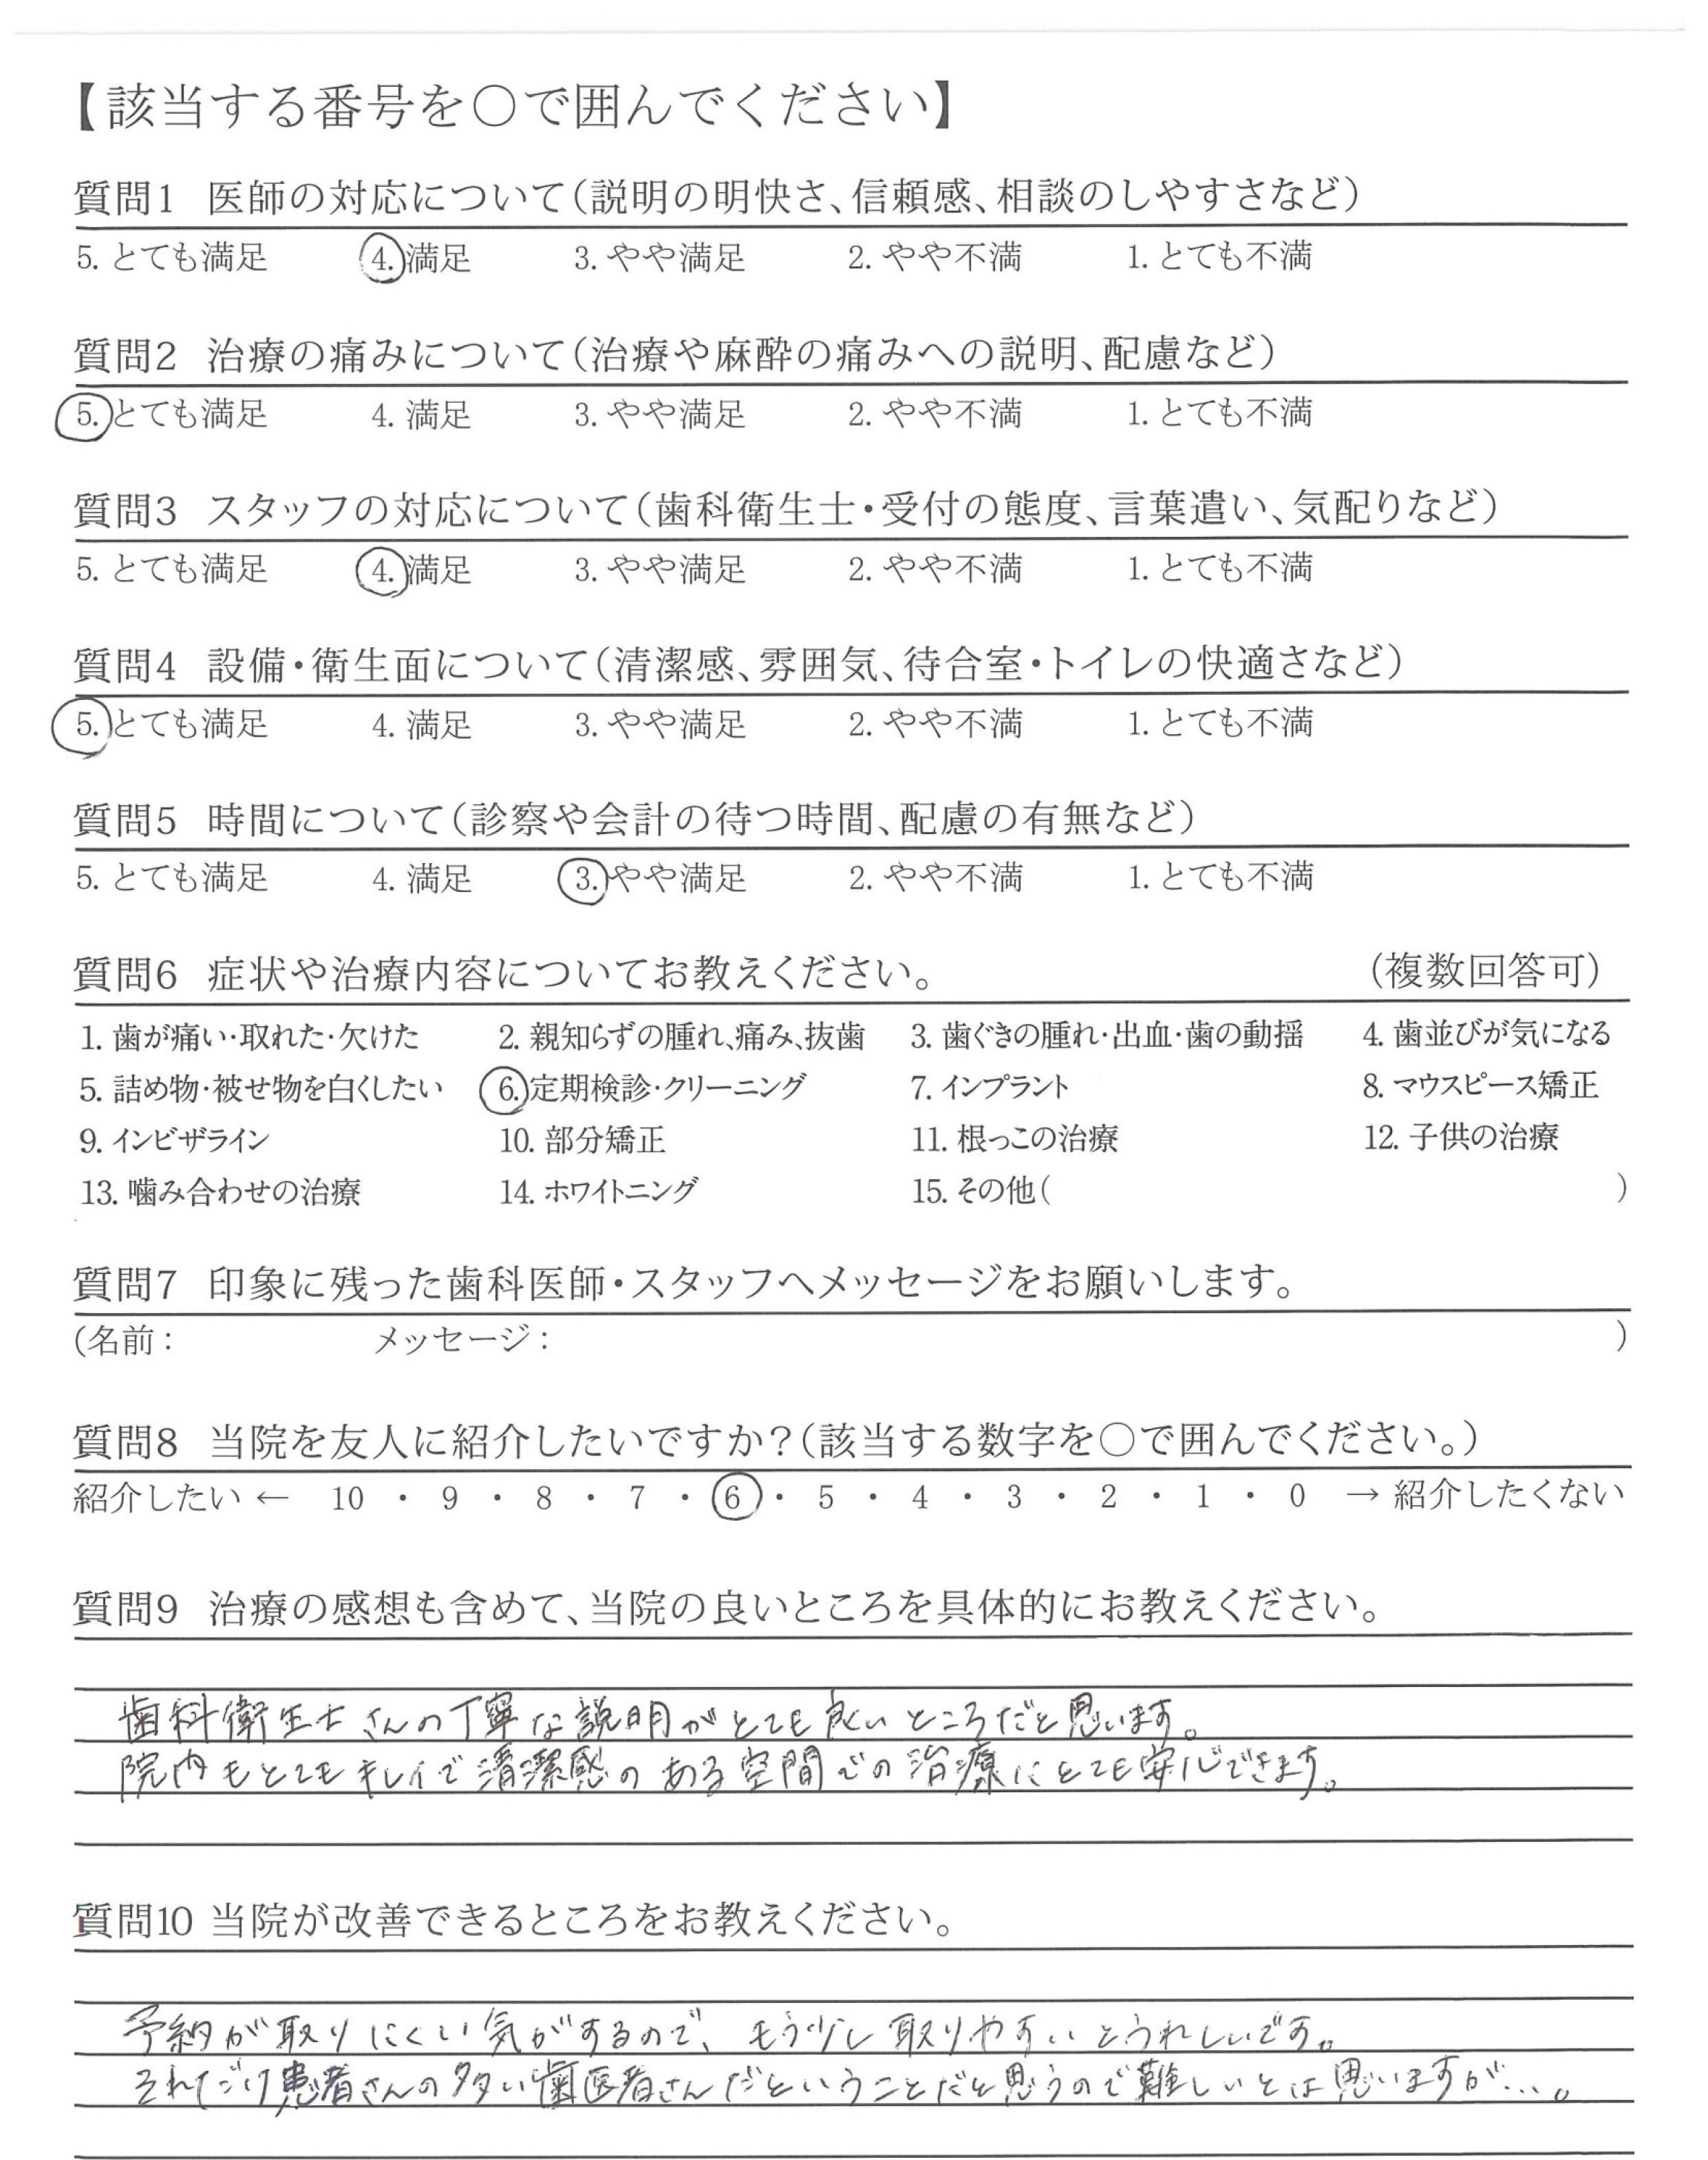 【該当する番号を〇で囲んでください】
質問1 医師の対応について（説明の明快さ、信頼感、相談のしやすさなど）
5. とても満足 4. 満足 3. やや満足 2. やや不満 1. とても不満
質問2 治療の痛みについて（治療や麻酔の痛みへの説明、配慮など）
5. とても満足 4. 満足 3. やや満足 2. やや不満 1. とても不満
質問3 スタッフの対応について（歯科衛生士・受付の態度、言葉遣い、気配りなど）
5. とても満足 4. 満足 3. やや満足 2. やや不満 1. とても不満
質問4 設備・衛生面について（清潔感、雰囲気、待合室・トイレの快適さなど）
5. とても満足 4. 満足 3. やや満足 2. やや不満 1. とても不満
質問5 時間について（診察や会計の待つ時間、配慮の有無など）
5. とても満足 4. 満足 3. やや満足 2. やや不満 1. とても不満
質問6 症状や治療内容についてお教えください。 （複数回答可）
1. 歯が痛い・取れた・欠けた 2. 親知らずの腫れ、痛み、抜歯 3. 歯ぐきの腫れ・出血・歯の動揺 4. 歯並びが気になる
5. 詰め物・被せ物を白くしたい 6. 定期検診・クリーニング 7. インプラント 8. マウスピース矯正
9. インビザライン 10. 部分矯正 11. 根っこの治療 12. 子供の治療
13. 噛み合わせの治療 14. ホワイトニング 15. その他（ ）
質問7 印象に残った歯科医師・スタッフへメッセージをお願いします。
（名前： メッセージ： ）
質問8 当院を友人に紹介したいですか？（該当する数字を〇で囲んでください。）
紹介したい ← 10 ・ 9 ・ 8 ・ 7 ・ 6 ・ 5 ・ 4 ・ 3 ・ 2 ・ 1 ・ 0 → 紹介したくない
質問9 治療の感想も含めて、当院の良いところを具体的にお教えください。
歯科衛生士さんの丁寧な説明がとても良いところだと思います。
院内もとてもキレイで清潔感のある空間での治療にとても安心できます。
質問10 当院が改善できるところをお教えください。
予約が取りにくい気がするので、もう少し取りやすいとうれしいです。
それだけ患者さんの多い歯医者さんだということだと思うので難しいとは思いますが…。